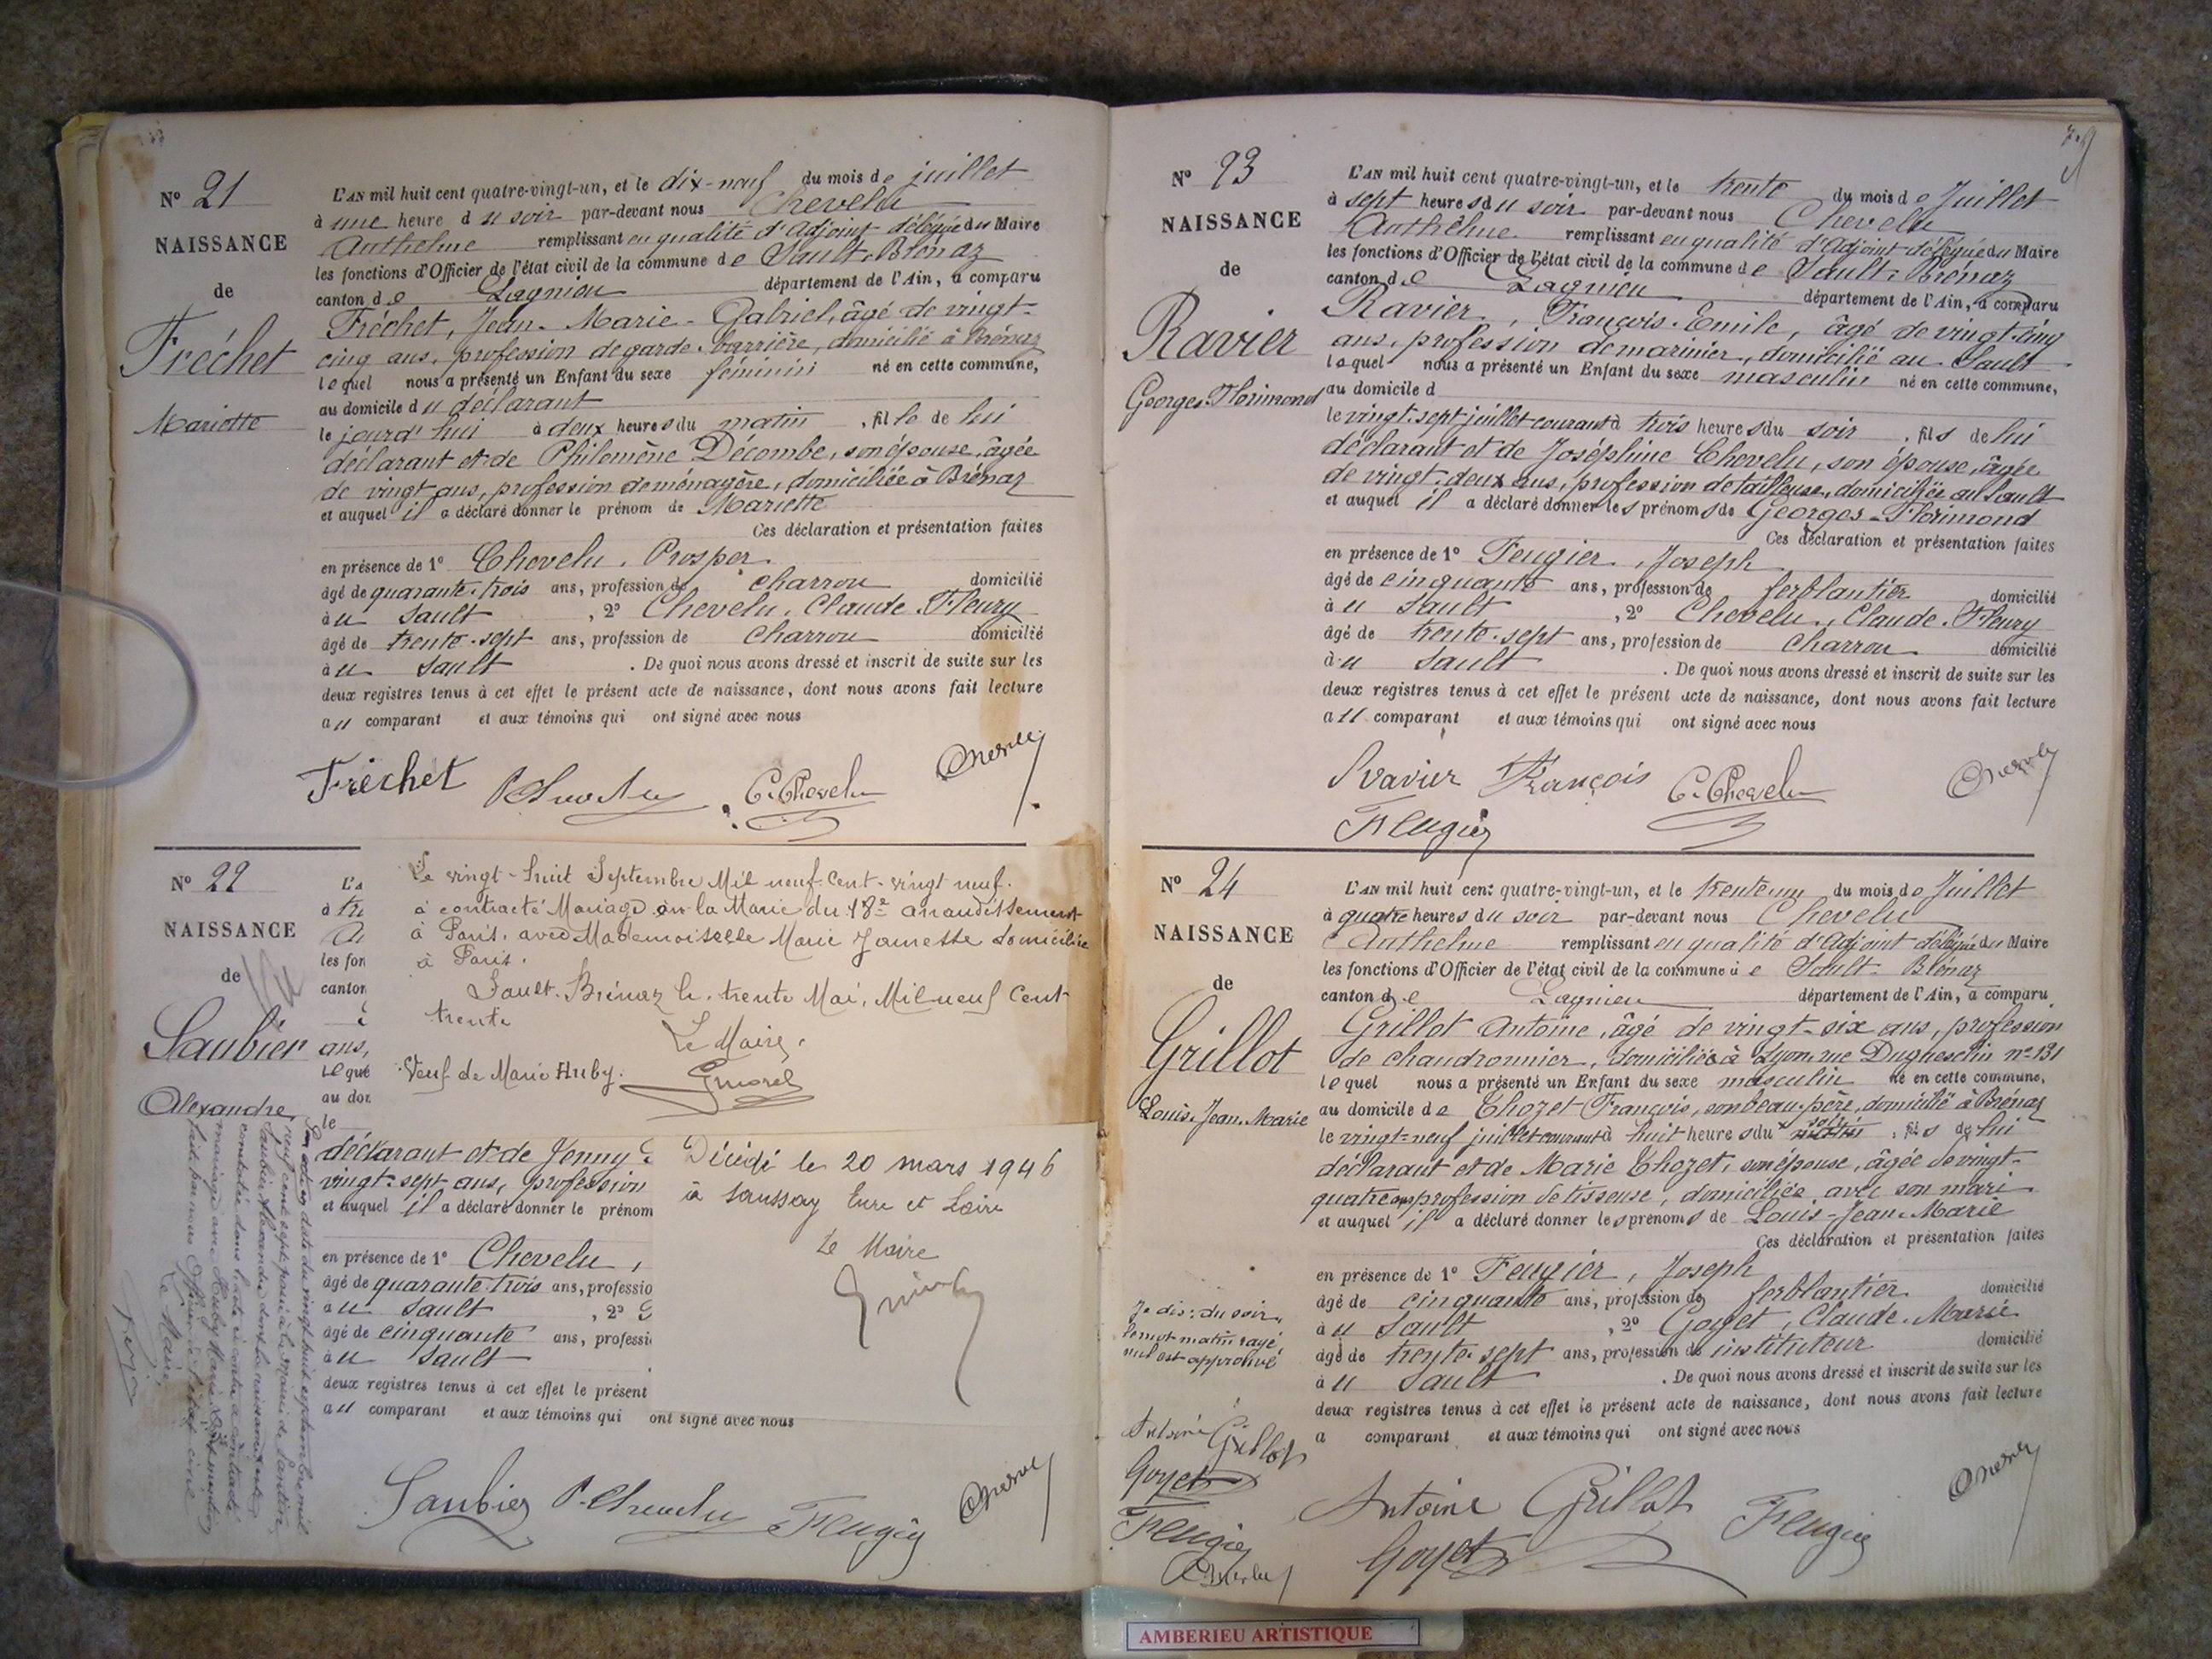 N° 21
NAISSANCE
de
Fréchet
Mariette
L'AN mil huit cent quatre-vingt-un, et le dix-neuf du mois de juillet
à une heure du soir par-devant nous Chevelu
Anthelme remplissant en qualité d'Adjoint délégué du Maire
les fonctions d'Officier de l'état civil de la commune de Sault-Brénaz
canton de Lagnieu département de l'Ain, a comparu
Fréchet, Jean-Marie-Gabriel, âgé de vingt-
cinq ans, profession de garde-barrière, domicilié à Brénaz
lequel nous a présenté un Enfant du sexe féminin né en cette commune,
au domicile du déclarant
le jourd'hui à deux heures du matin, fille de lui
déclarant et de Philomène Décombe, son épouse, âgée
de vingt ans, profession de ménagère, domiciliée à Brénaz
et auquel il a déclaré donner le prénom de Mariette
Ces déclaration et présentation faites
en présence de 1° Chevelu, Prosper
âgé de quarante-trois ans, profession de charron domicilié
à u Sault, 2° Chevelu, Claude-Fleury
âgé de trente-sept ans, profession de charron domicilié
à u Sault. De quoi nous avons dressé et inscrit de suite sur les
deux registres tenus à cet effet le présent acte de naissance, dont nous avons fait lecture
au comparant et aux témoins qui ont signé avec nous
Fréchet P. Chevelu C. Chevelu Chevelu
N° 22
NAISSANCE
de
Saubier
Alexandre
L'A
à tre
An
les fon
canton
ans,
lequ
au dor
le
Le vingt-huit Septembre Mil neuf-cent-vingt neuf.
a contracté Mariage en la Mairie du 18e arrondissement
à Paris. avec Mademoiselle Marie Jamette domiciliée
à Paris.
Sault-Brénaz le trente Mai, Mil neuf Cent
trente
Le Maire,
Veuf de Marie Huby.
déclarant et de Jenny
vingt-sept ans, profession
et auquel il a déclaré donner le prénom
en présence de 1° Chevelu,
âgé de quarante-trois ans, professio
à u Sault, 2°
âgé de cinquante ans, professi
à u Sault
deux registres tenus à cet effet le présent
au comparant et aux témoins qui ont signé avec nous
Décédé le 20 mars 1946
à Saussay Eure et Loire
Le Maire
Saubier P. Chevelu Feugier Chevelu
N° 23
NAISSANCE
de
Ravier
Georges-Florimond
L'AN mil huit cent quatre-vingt-un, et le trente du mois de Juillet
à sept heures du soir par-devant nous Chevelu
Anthelme remplissant en qualité d'Adjoint délégué du Maire
les fonctions d'Officier de l'état civil de la commune de Sault-Brénaz
canton de Lagnieu département de l'Ain, a comparu
Ravier, François-Emile, âgé de vingt-cinq
ans, profession de marinier, domicilié au Sault
lequel nous a présenté un Enfant du sexe masculin né en cette commune,
au domicile d
le vingt-sept juillet courant à trois heures du soir, fils de lui
déclarant et de Joséphine Chevelu, son épouse, âgée
de vingt-deux ans, profession de tailleuse, domiciliée au Sault
et auquel il a déclaré donner les prénoms de Georges-Florimond
Ces déclaration et présentation faites
en présence de 1° Feugier, Joseph
âgé de cinquante ans, profession de ferblantier domicilié
à u Sault, 2° Chevelu, Claude-Fleury
âgé de trente-sept ans, profession de charron domicilié
à u Sault. De quoi nous avons dressé et inscrit de suite sur les
deux registres tenus à cet effet le présent acte de naissance, dont nous avons fait lecture
au comparant et aux témoins qui ont signé avec nous
Ravier François C. Chevelu Chevelu
Feugier
N° 24
NAISSANCE
de
Grillot
Louis-Jean-Marie
L'AN mil huit cent quatre-vingt-un, et le trente un du mois de Juillet
à quatre heures du soir par-devant nous Chevelu
Anthelme remplissant en qualité d'Adjoint délégué du Maire
les fonctions d'Officier de l'état civil de la commune de Sault-Brénaz
canton de Lagnieu département de l'Ain, a comparu
Grillot Antoine, âgé de vingt-six ans, profession
de chaudronnier, domicilié à Lyon, rue Dugheschin n° 131
lequel nous a présenté un Enfant du sexe masculin né en cette commune,
au domicile de Chozet François, son beau-père, domicilié à Brénaz
le vingt-neuf juillet courant à huit heures du matin soir, fils de lui
déclarant et de Marie Chozet, son épouse, âgée de vingt-
quatre ans profession de tisseuse, domiciliée avec son mari
et auquel il a déclaré donner les prénoms de Louis-Jean-Marie
Ces déclaration et présentation faites
en présence de 1° Feugier, Joseph
âgé de cinquante ans, profession de ferblantier domicilié
à u Sault, 2° Goyet, Claude-Marie
âgé de trente-sept ans, profession de instituteur domicilié
à u Sault. De quoi nous avons dressé et inscrit de suite sur les
deux registres tenus à cet effet le présent acte de naissance, dont nous avons fait lecture
a comparant et aux témoins qui ont signé avec nous
Je dis: du soir,
le mot matin rayé
nul est approuvé
Antoine Grillot
Goyet
Feugier
Chevelu
Antoine Grillot Feugier Chevelu
Goyet
AMBERIEU ARTISTIQUE